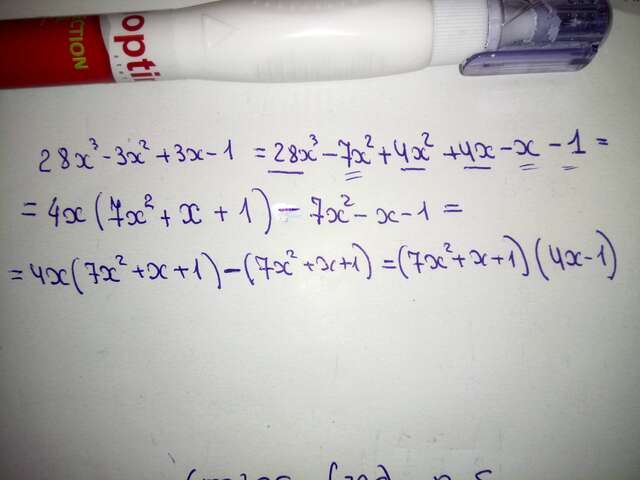 28x³-3x²+3x-1 = 28x³-7x²+4x²+4x-x-1=
=4x(7x²+x+1)-7x²-x-1=
=4x(7x²+x+1)-(7x²+x+1)=(7x²+x+1)(4x-1)
CTION
opti